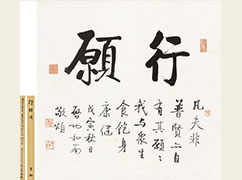 行願
凡夫非
普賢亦自
有其願
我与眾生
食飽身
康健
戊寅秋日
啟功和南
敬頌